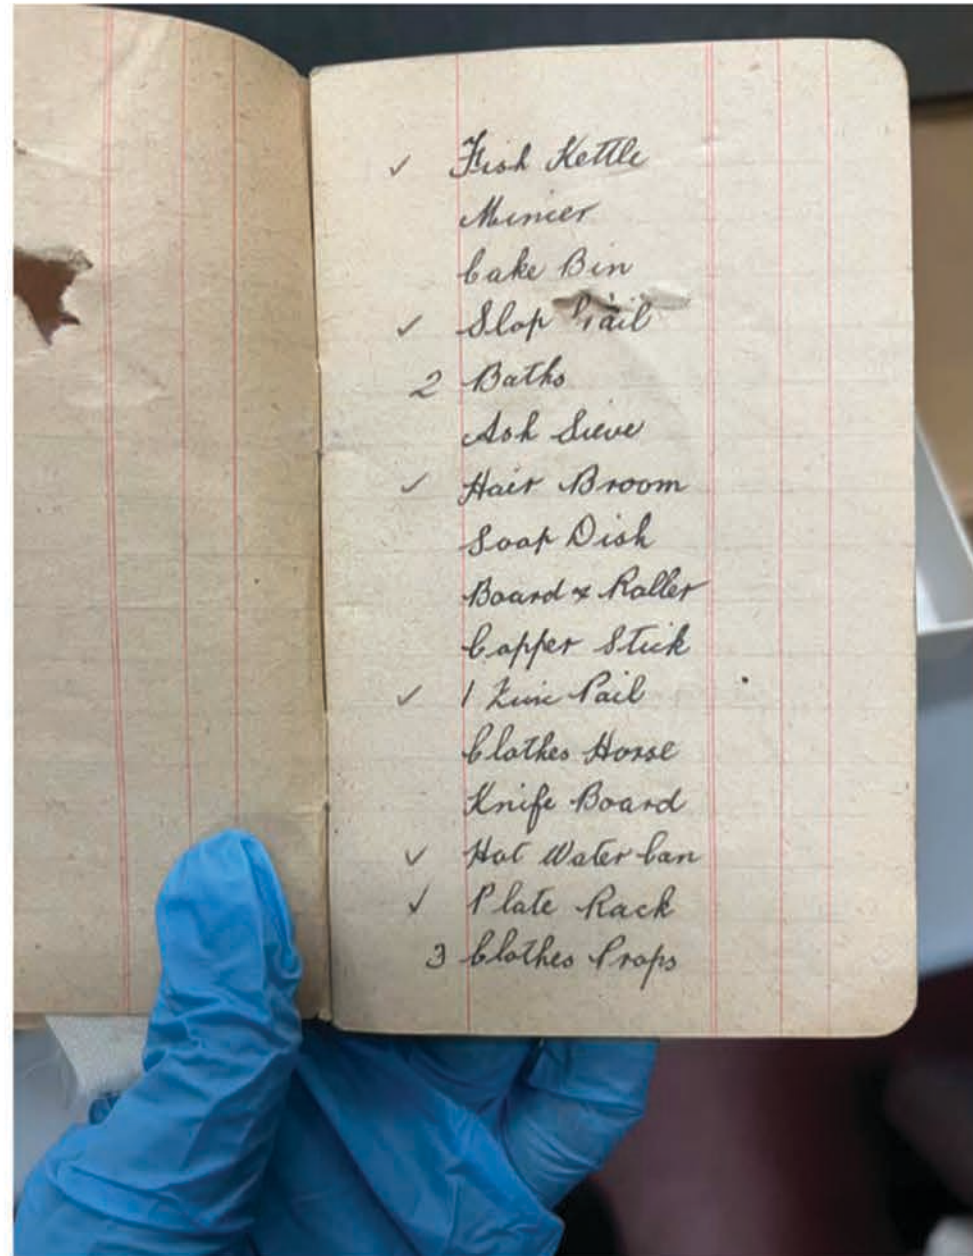 ✓ Fish Kettle
Mincer
Cake Bin
✓ Slop Pail
2 Baths
Ash Sieve
✓ Hair Broom
Soap Dish
Board & Roller
Copper Stick
✓ 1 Zinc Pail
Clothes Horse
Knife Board
✓ Hot Water Can
✓ Plate Rack
3 Clothes Props